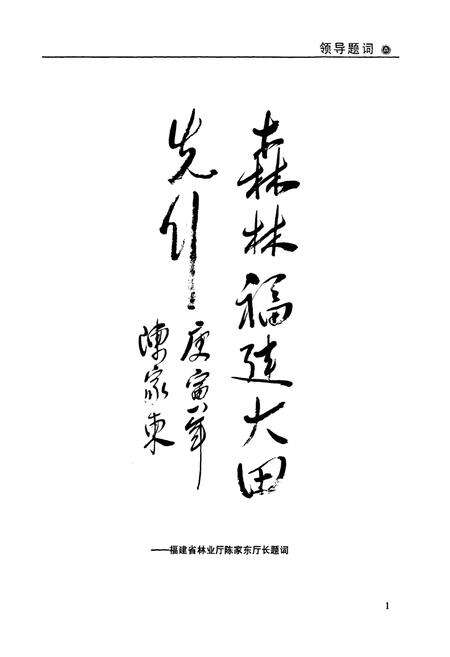 领导题词
森林福建大田
先行
庚寅年
陈家东
——福建省林业厅陈家东厅长题词
1